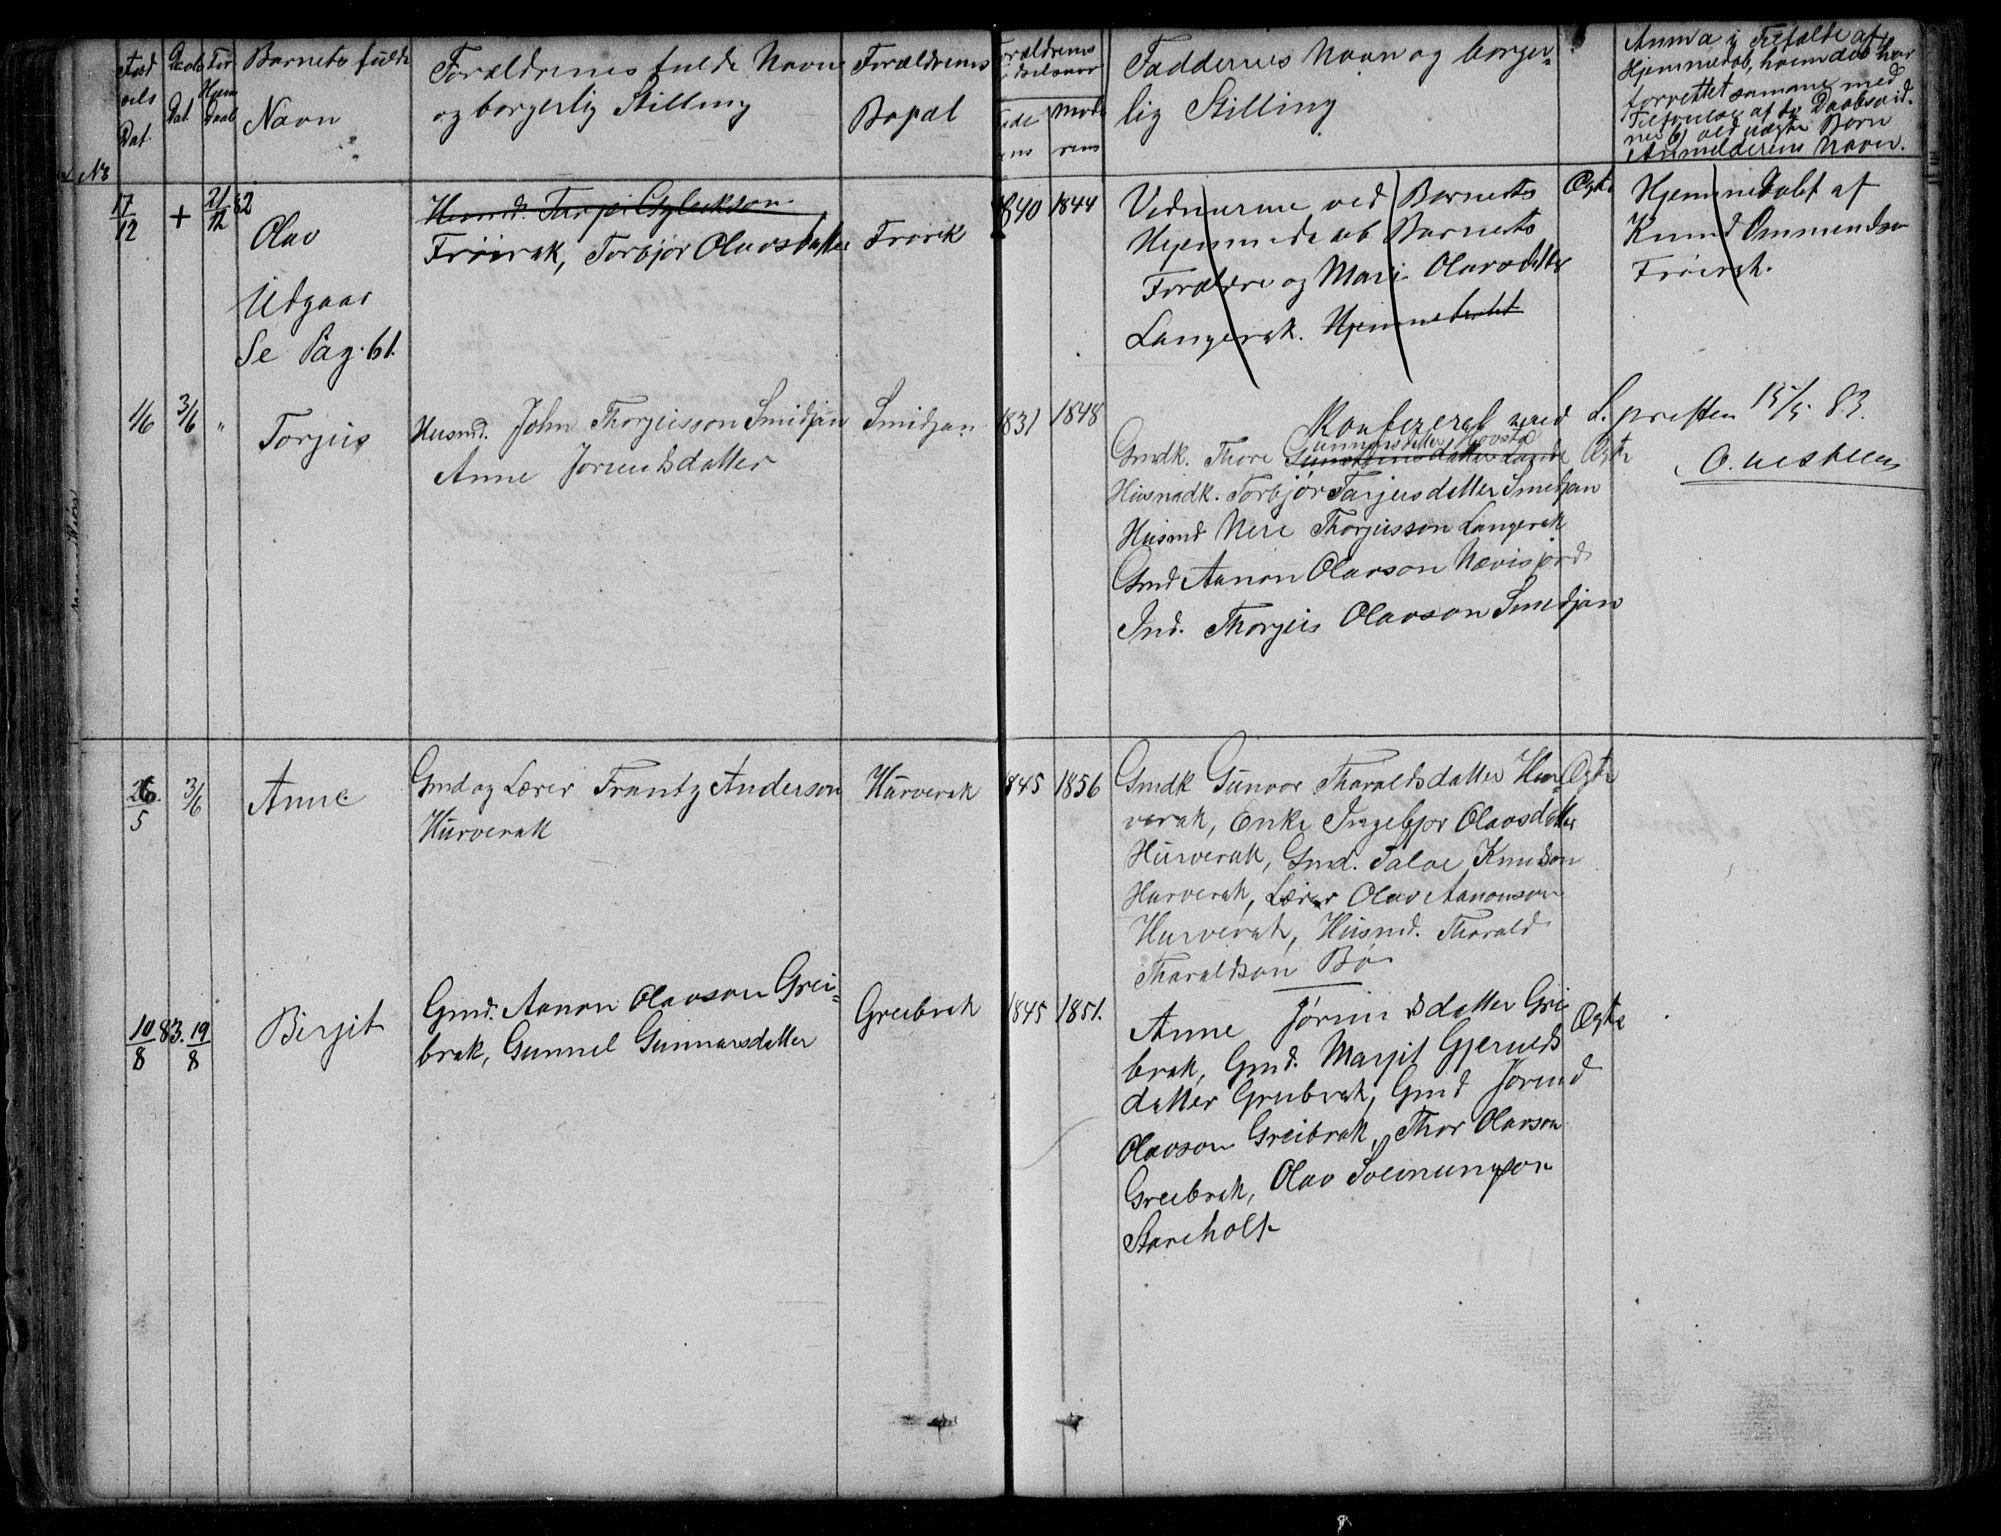 Fød
sels
Dat.
Daabs
Dat.
For
Hjem
Daab
Barnets fulde
Navn
Forældrenes fulde Navn
og borgerlig Stilling
Forældrenes
Bopæl
Forældrenes
Fødselsaar
Fade
rens
Mode
rens
Faddernes Navn og borger-
lig Stilling
Anmk. i Tilfælde af
Hjemmedåb, hvem der har
forrettet samme med
Tilføielse af to Daabsvid-
ner b) ved uægte Børn
Anmelderens Navn.
No
17/12 + 21/12 82
Olav
Udgaar
Se Pag. 61.
Husmd. Tarjei Gjelekson
Frøirak, Torbjør Olavsdatter
Frøirk
1840 1844
Vidnerne ved Barnets
Hjemmedaab Barnets
Forældre og Mari Olavsdatter
Langerak. Hjemmedøbt
Ægte
Hjemmedøbt af
Knud Ommundson
Frøirak.
1/6 3/6 "
Torjus
Husmd. John Thorjusson Smidjan
Anne Jørundsdatter
Smidjan
1831 1848
Konfereret med S. presten 15/5 83.
O. Uesteen
Gunnarsdatter Hovsta
Gmdk. Thore Gunsteinsdatter Lande Ægte
Husmdk. Torbjør Tarjeisdatter Smedjan
Husmd Neri Thorjusson Langerak
Gmd Aanon Olavson Nævisjord
Ind. Thorjus Olavson Smedjan
26/5 3/6
Anne
Gmd og Lærer Frantz Anderson
Hurverak
Hurverak
1845 1856
Gmdk Gunvor Tharaldsdatter Hur-
verak, Enke Ingebjør Olavsdatter
Hurverak, Gmd. Talae Knudson
Hurverak, Lærer Olav Aanonson
Hurverak, Husmd. Tharald
Tharaldson Bø
Ægte
10/8 83. 19/8
Birgit
Gmd. Aanon Olavson Grei-
brak, Gunnel Gunnarsdatter
Greibrak
1845 1851.
Anne Jørundsdatter Grei
brak, Gmd. Margit Gjeruds
datter Greibrak, Gmd Jørund
Olavson Greibrak, Thor Olavson
Greibrak, Olav Sveinungson
Stareholt
Ægte